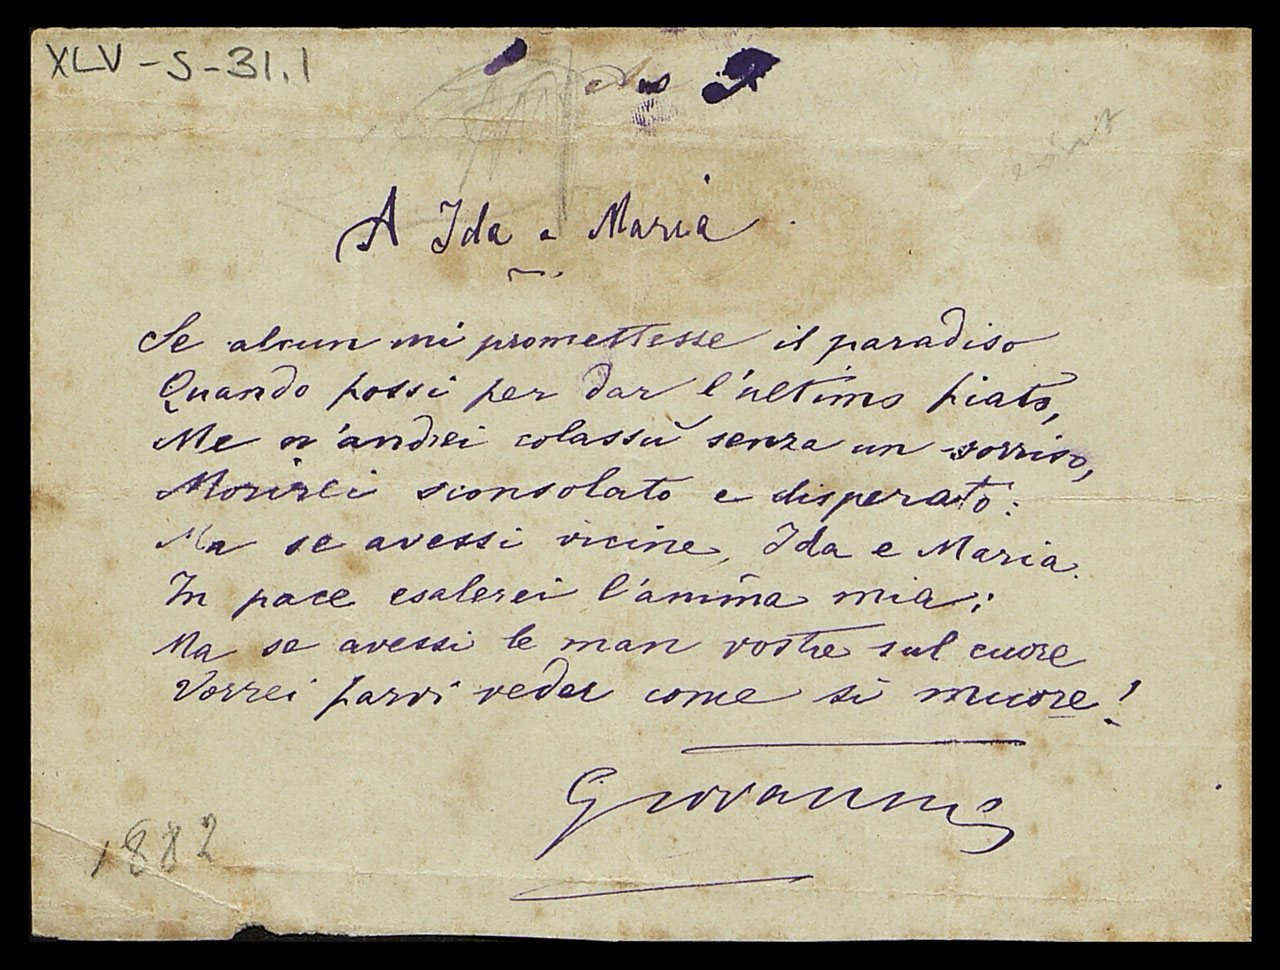 XLV-5-31.1
A Ida e Maria.
Se alcun mi promettesse il paradiso
Quando fossi per dar l'ultimo fiato,
Me n'andrei colassù senza un sorriso,
Morirei sconsolato e disperato:
Ma se avessi vicine, Ida e Maria.
In pace esalerei l'anima mia;
Ma se avessi le man vostre sul cuore
Vorrei farvi veder come si muore!
Giovannino
1882